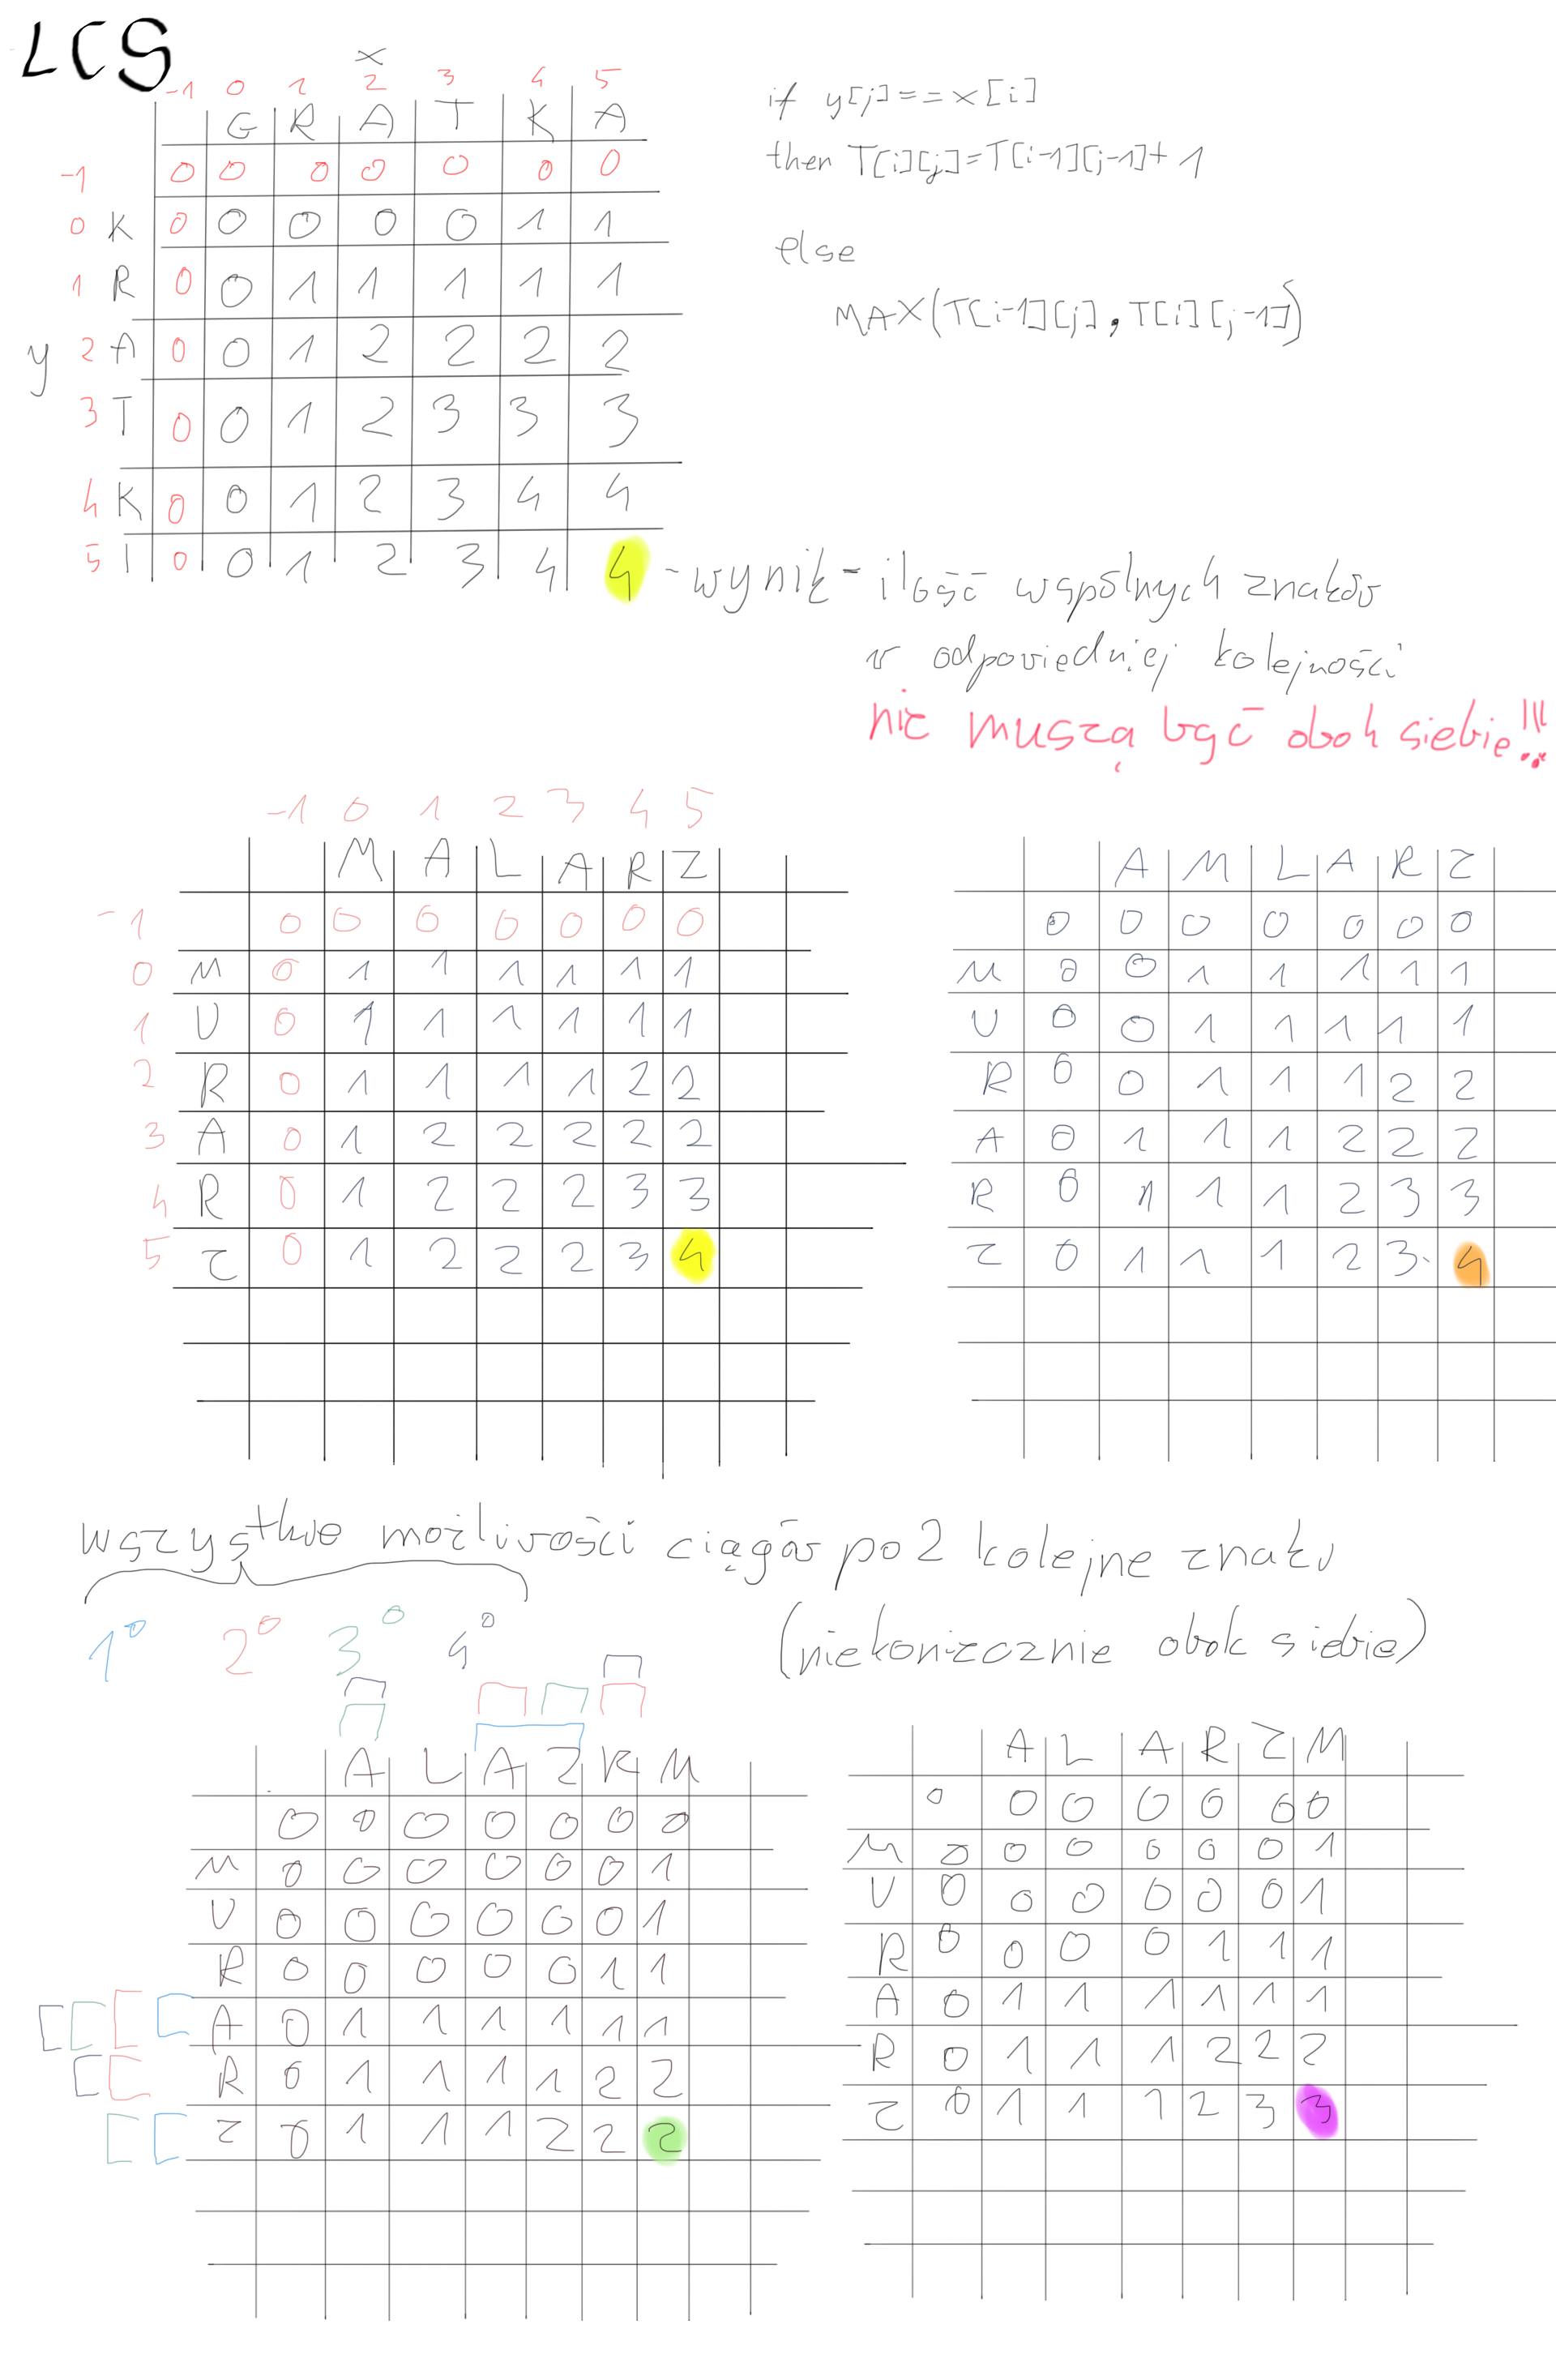 LCS
x
-1 0 1 2 3 4 5
G R A T K A
-1 0 0 0 0 0 0 0
0 K 0 0 0 0 0 1 1
1 R 0 0 1 1 1 1 1
y 2 A 0 0 1 2 2 2 2
3 T 0 0 1 2 3 3 3
4 K 0 0 1 2 3 4 4
5 I 0 0 1 2 3 4 4 - wynik - ilość wspólnych znaków
w odpowiedniej kolejności
nie muszą być obok siebie!!!
if y[j]==x[i]
then T[i][j]=T[i-1][j-1]+1
else
MAX(T[i-1][j], T[i][j-1])
-1 0 1 2 3 4 5
M A L A R Z
-1 0 0 0 0 0 0 0
0 M 0 1 1 1 1 1 1
1 U 0 1 1 1 1 1 1
2 R 0 1 1 1 1 2 2
3 A 0 1 2 2 2 2 2
4 R 0 1 2 2 2 3 3
5 Z 0 1 2 2 2 3 4
A M L A R Z
0 0 0 0 0 0 0
M 0 0 1 1 1 1 1
U 0 0 1 1 1 1 1
R 0 0 1 1 1 2 2
A 0 1 1 1 2 2 2
R 0 1 1 1 2 3 3
Z 0 1 1 1 2 3 4
wszystkie możliwości ciągów po 2 kolejne znaki
(niekoniecznie obok siebie)
1° 2° 3° 4°
A L A Z R M
0 0 0 0 0 0 0
M 0 0 0 0 0 0 1
U 0 0 0 0 0 0 1
R 0 0 0 0 0 1 1
A 0 1 1 1 1 1 1
R 0 1 1 1 1 2 2
Z 0 1 1 1 2 2 2
A L A R Z M
0 0 0 0 0 0 0
M 0 0 0 0 0 0 1
U 0 0 0 0 0 0 1
R 0 0 0 0 1 1 1
A 0 1 1 1 1 1 1
R 0 1 1 1 2 2 2
Z 0 1 1 1 2 3 3